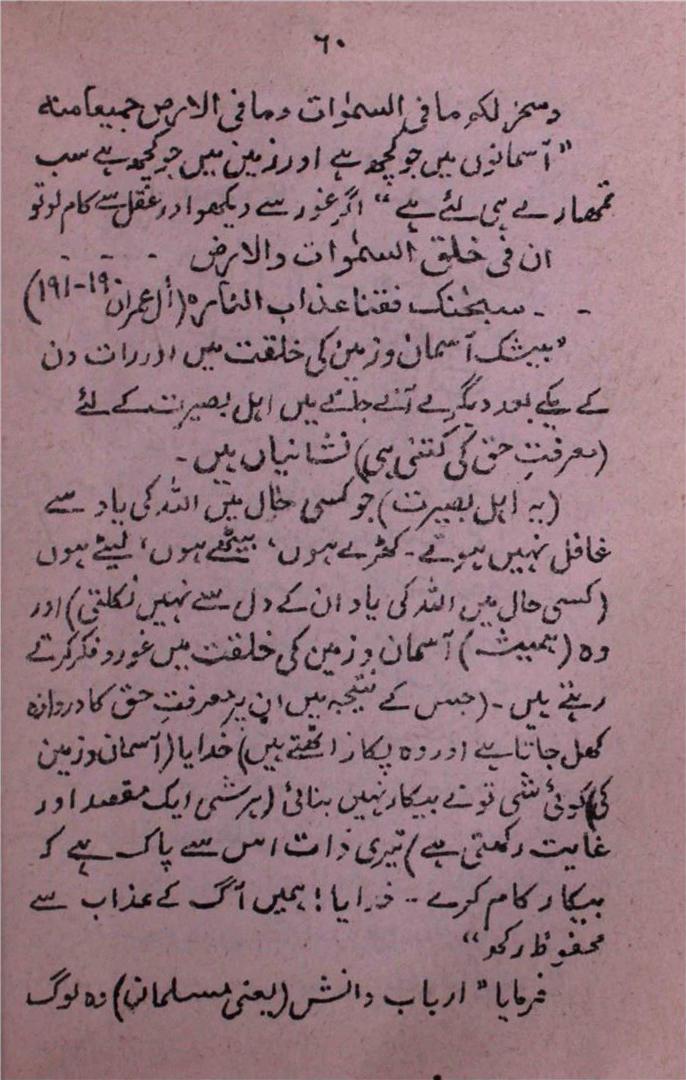 ۶۰
وسخر لکم مافی السمٰوات ومافی الارض جمیعا منه
"آسمانوں میں جو کچھ ہے اور زمین میں جو کچھ ہے سب
تمھارے ہی لئے ہے" اگر غور سے دیکھو اور عقل سے کام لو تو
ان فی خلق السمٰوات والارض - - - -
- - سبحٰنک فقنا عذاب النار ہ (اٰل عمران ۱۹۰-۱۹۱)
"بیشک آسمان و زمین کی خلقت میں اور رات دن
کے یکے بعد دیگرے آنے جانے میں اہل بصیرت کے لئے
(معرفتِ حق کی کتنی ہی) نشانیاں ہیں -
(یہ اہل بصیرت) جو کسی حال میں اللہ کی یاد سے
غافل نہیں ہوتے - کھڑے ہوں، بیٹھے ہوں، لیٹے ہوں
(کسی حال میں اللہ کی یاد ان کے دل سے نہیں نکلتی) اور
وہ (ہمیشہ) آسمان و زمین کی خلقت میں غور و فکر کرتے
رہتے ہیں - (جس کے نتیجہ میں ان پر معرفتِ حق کا دروازہ
کھل جاتا ہے اور وہ پکار اٹھتے ہیں) خدایا (آسمان و زمین
کی) کوئی شی تو نے بیکار نہیں بنائی (ہر شی ایک مقصد اور
غایت رکھتی ہے) تیری ذات اس سے پاک ہے کہ
بیکار کام کرے - خدایا! ہمیں آگ کے عذاب سے
محفوظ رکھ"
فرمایا "ارباب دانش (یعنی مسلمان) وہ لوگ